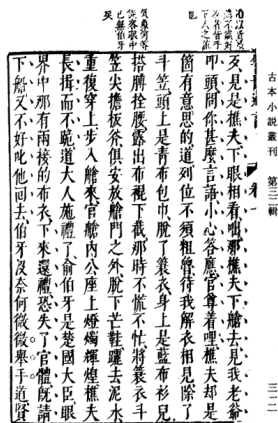 古本小說叢刊　第三二輯
三一二
歹見是樵夫下眼相看咄那樵夫下艙去見我老爺
叩頭問你甚麼言語小心答應官尊着哩樵夫却是
箇有意思的道列位不須粗魯待我解衣相見除了
斗笠頭上是青布包巾脫了蓑衣身上是藍布衫兒
搭膊拴腰露出布裩下截那時不慌不忙將蓑衣斗
笠尖擔板斧俱安放艙門之外脫下芒鞋躧去泥水
重復穿上步入艙來官艙內公座上燈燭輝煌樵夫
長揖而不跪道大人施禮了俞伯牙是楚國大臣眼
界中那有兩接的布衣下來還禮恐失了官體既請
下船又不好叱他回去伯牙沒奈何微微舉手道賢
從容眼中
已無伯牙
矣